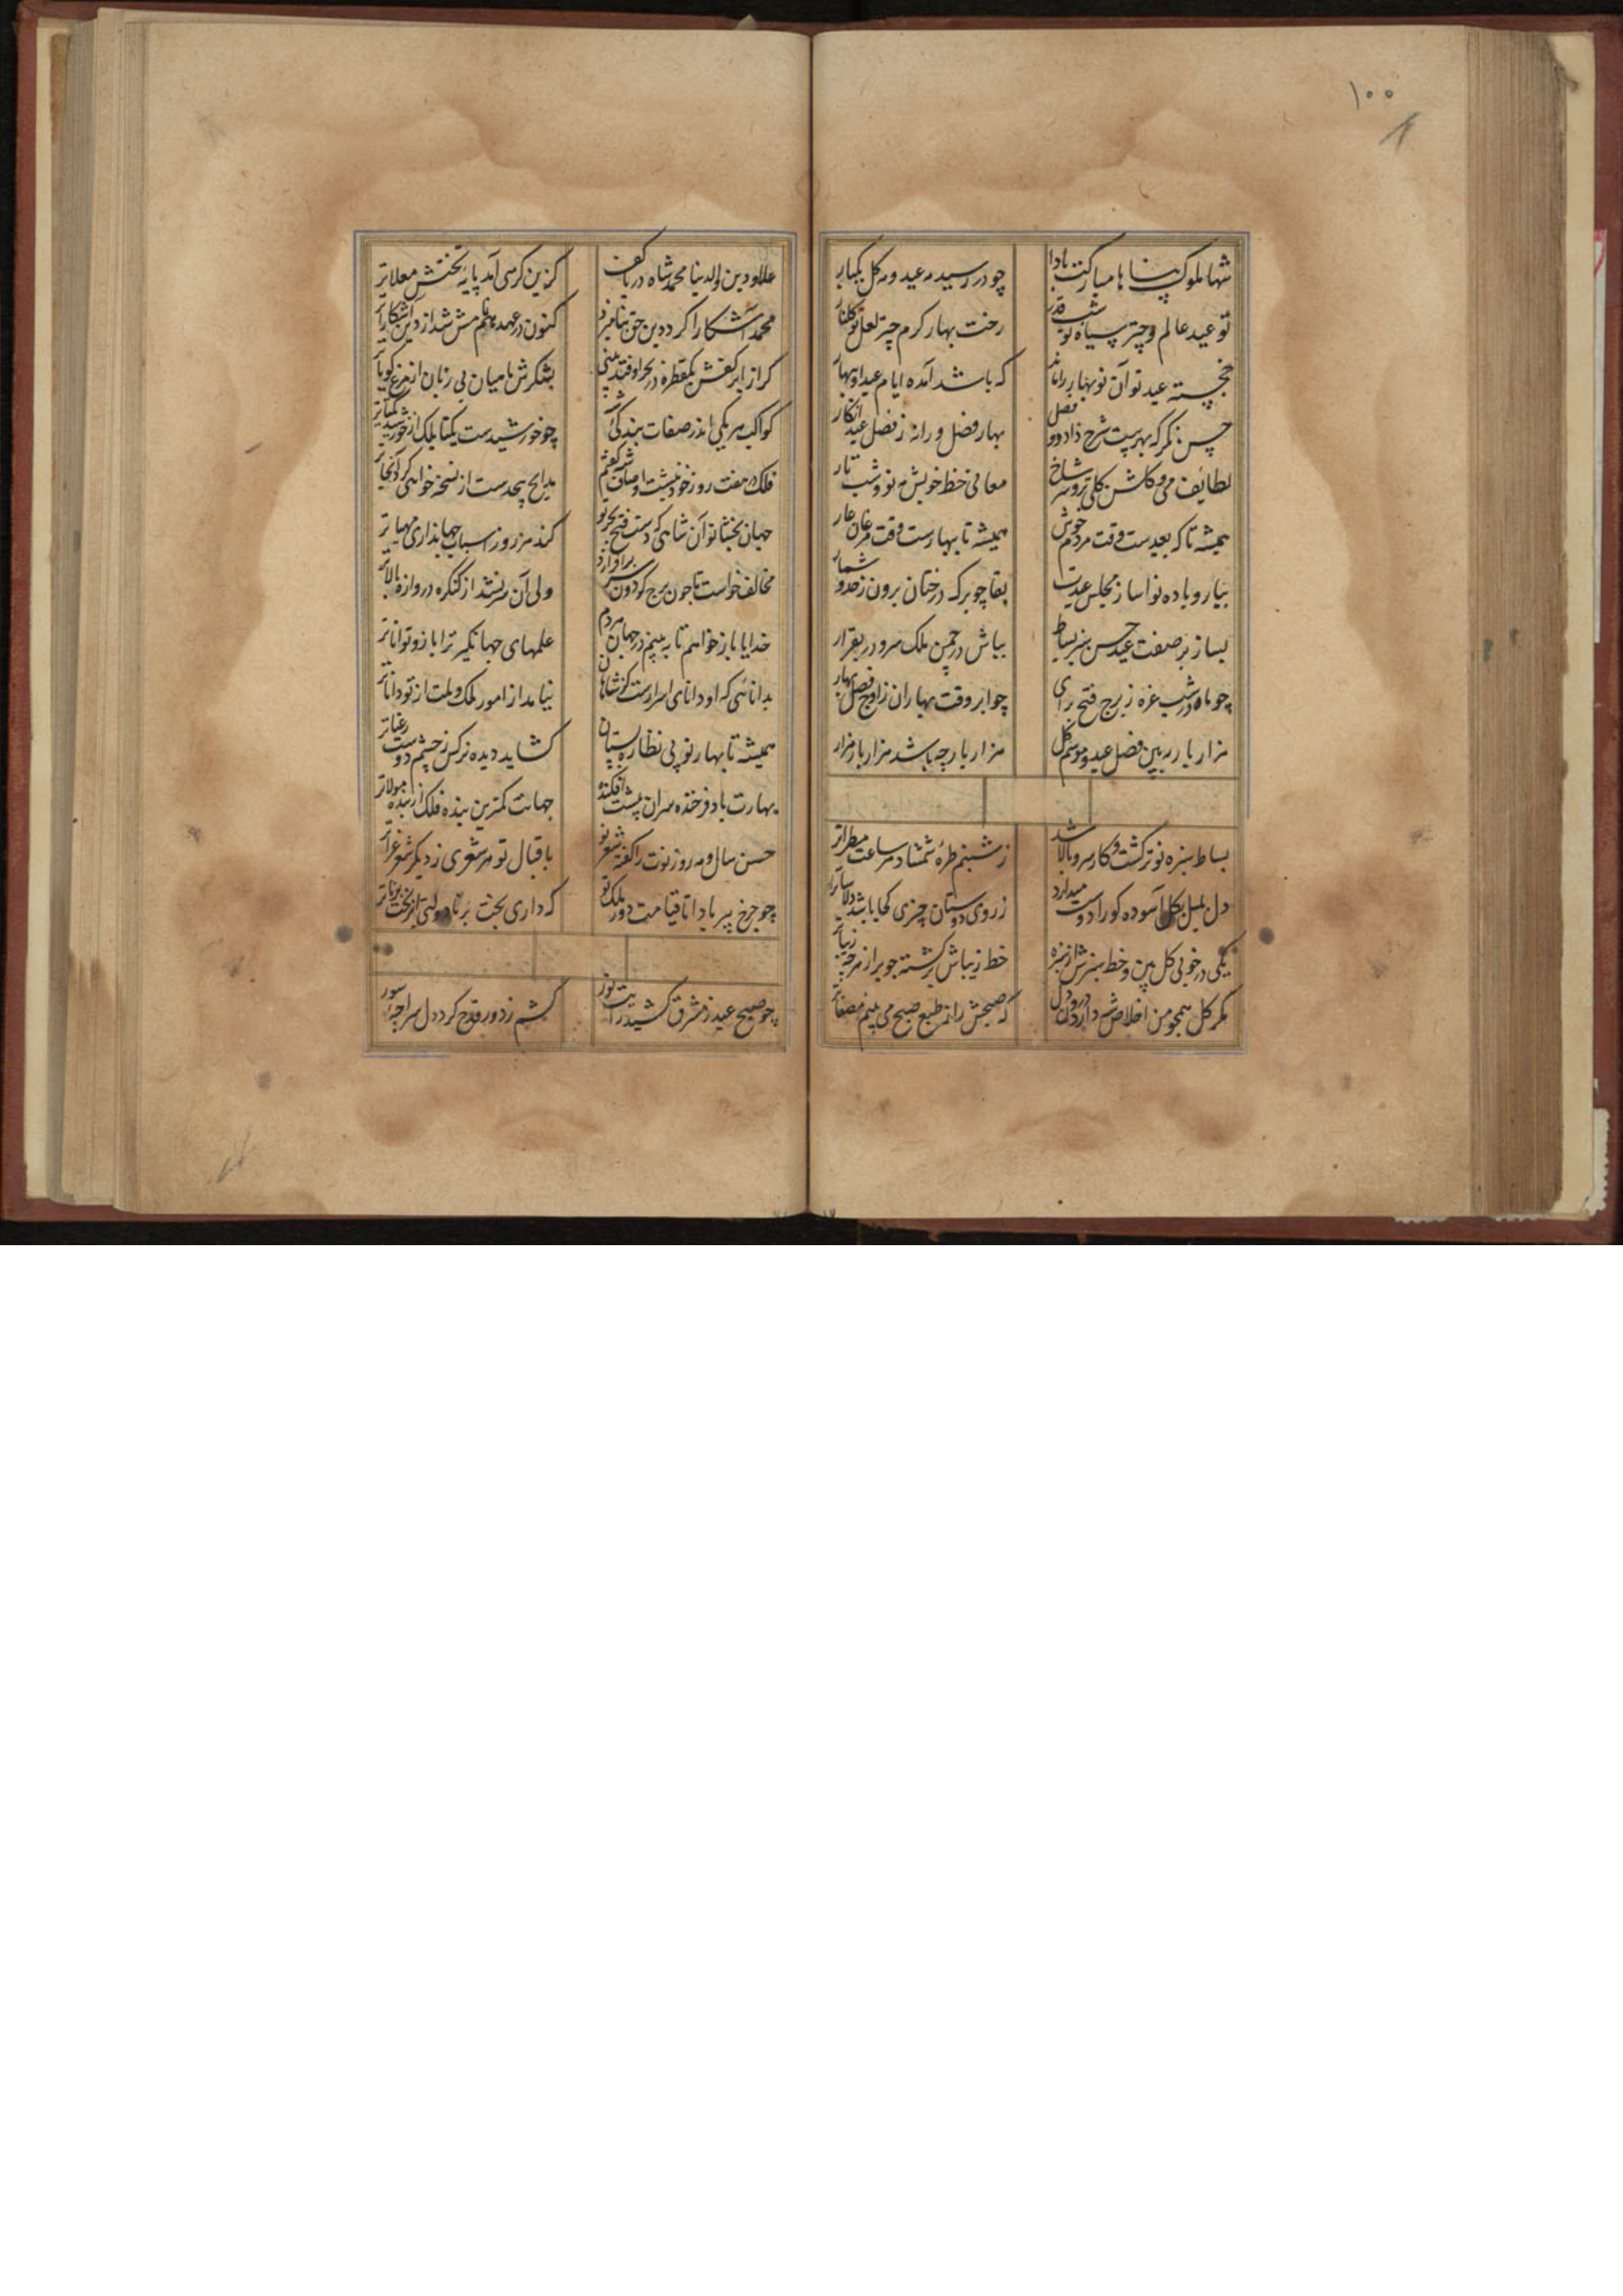 ۱۰۰
شها ملوک پناها مبارکت بادا
چو در رسید مه عید و مه گل یکبار
تو عید عالم و چتر سیاه تو شب قدر
رخت بهار کرم چتر لعل تو گلنار
خجسته عید تو آن نوبهار را ماند
که باشد آمده ایام عید او بهار
حسن نگر که بهر بیت شرح داد دو فصل
بهار فضل ورا نه ز فصل عید انکار
لطائف می و گلشن گلی تر و سر شاخ
معانی خط خویش مه نو و شب تار
همیشه تا که بعیدست وقت مردم خوش
همیشه تا بهارست وقت مرغان
بیار و باده نوا ساز مجلس عیدت
بقا چو برگ درختان برون ز حد و شمار
بساز بر صفت عید حسن سبز بساط
بباش در چمن ملک سرو در بقرار
چو ماه در شب غره ز برج فتح برای
چو ابر وقت بهاران ز اوج فصل بهار
هزار بار به بین فصل عید و موسم گل
هزار بار چه باشد هزار بار هزار
بساط سبزه نو تر گشت و کار سرو بالا شد
ز شبنم طره شمشاد هر ساعت مطراتر
دل بلبل بگل آسوده کو را دوست میدارد
ز روی دوستان چیزی کجا باشد دلاساتر
یکی در خوبی گل بین و خط سبزش از سبزه
خط زیباش برگشته چو بر از هر چه زیباتر
مگر گل همچو من اخلاص شه دارد درون دل
که صبحش را ز طبع صبح می بینم مصفاتر
علاو دین والدنیا محمد شاه دریا کف
کزین کرسی آمد پایه تختش معلاتر
محمد آشکارا کرد دین حق
کنون در عهد همنامش شد از دین آشکاراتر
گر از ابر کفش یکقطره در بحر اوفتد بینی
بشکرش ماهیان بی زبان از مرغ گویاتر
کواکب هر یکی اندر صفات بندگی
چو خورشیدست یکتا بلک از خورشید یکتاتر
فلک هفت روز خود نبشت اوصاف
مدایح بیحدست از نسخه خواهی کرد آنجا بر
جهان بخشا تو آن شاهی که دست فتح بحر تو
کند هر روز اسباب جهانداری مهیاتر
مخالف خواست تا چون برج گردون سر برافرازد
ولی آن سر نشد از کنگره دروازه بالاتر
خدایا باز خواهم تا به بینم در جهان هر دم
علمهای جهانگیر ترا بازو تواناتر
بدانائی که او دانای اسرارست کز شاهان
نیامد از امور ملک و ملت از تو داناتر
همیشه تا بهار نو پی نظاره بستان
گشاید دیده نرگس ز چشم دوست رعناتر
بهارت باد فرخنده سران پیشت افکنده
جهانت کمترین بنده فلک از بنده مولاتر
حسن سال و مه روز نوت را گفته شعر نو
باقبال تو هر شعری ز دیگر شعر غراتر
چو چرخ پیر بادا تا قیامت دور ملک تو
که داری بخت برنا دولتی از بخت برناتر
چو صبح عید ز مشرق کشید رایت نور